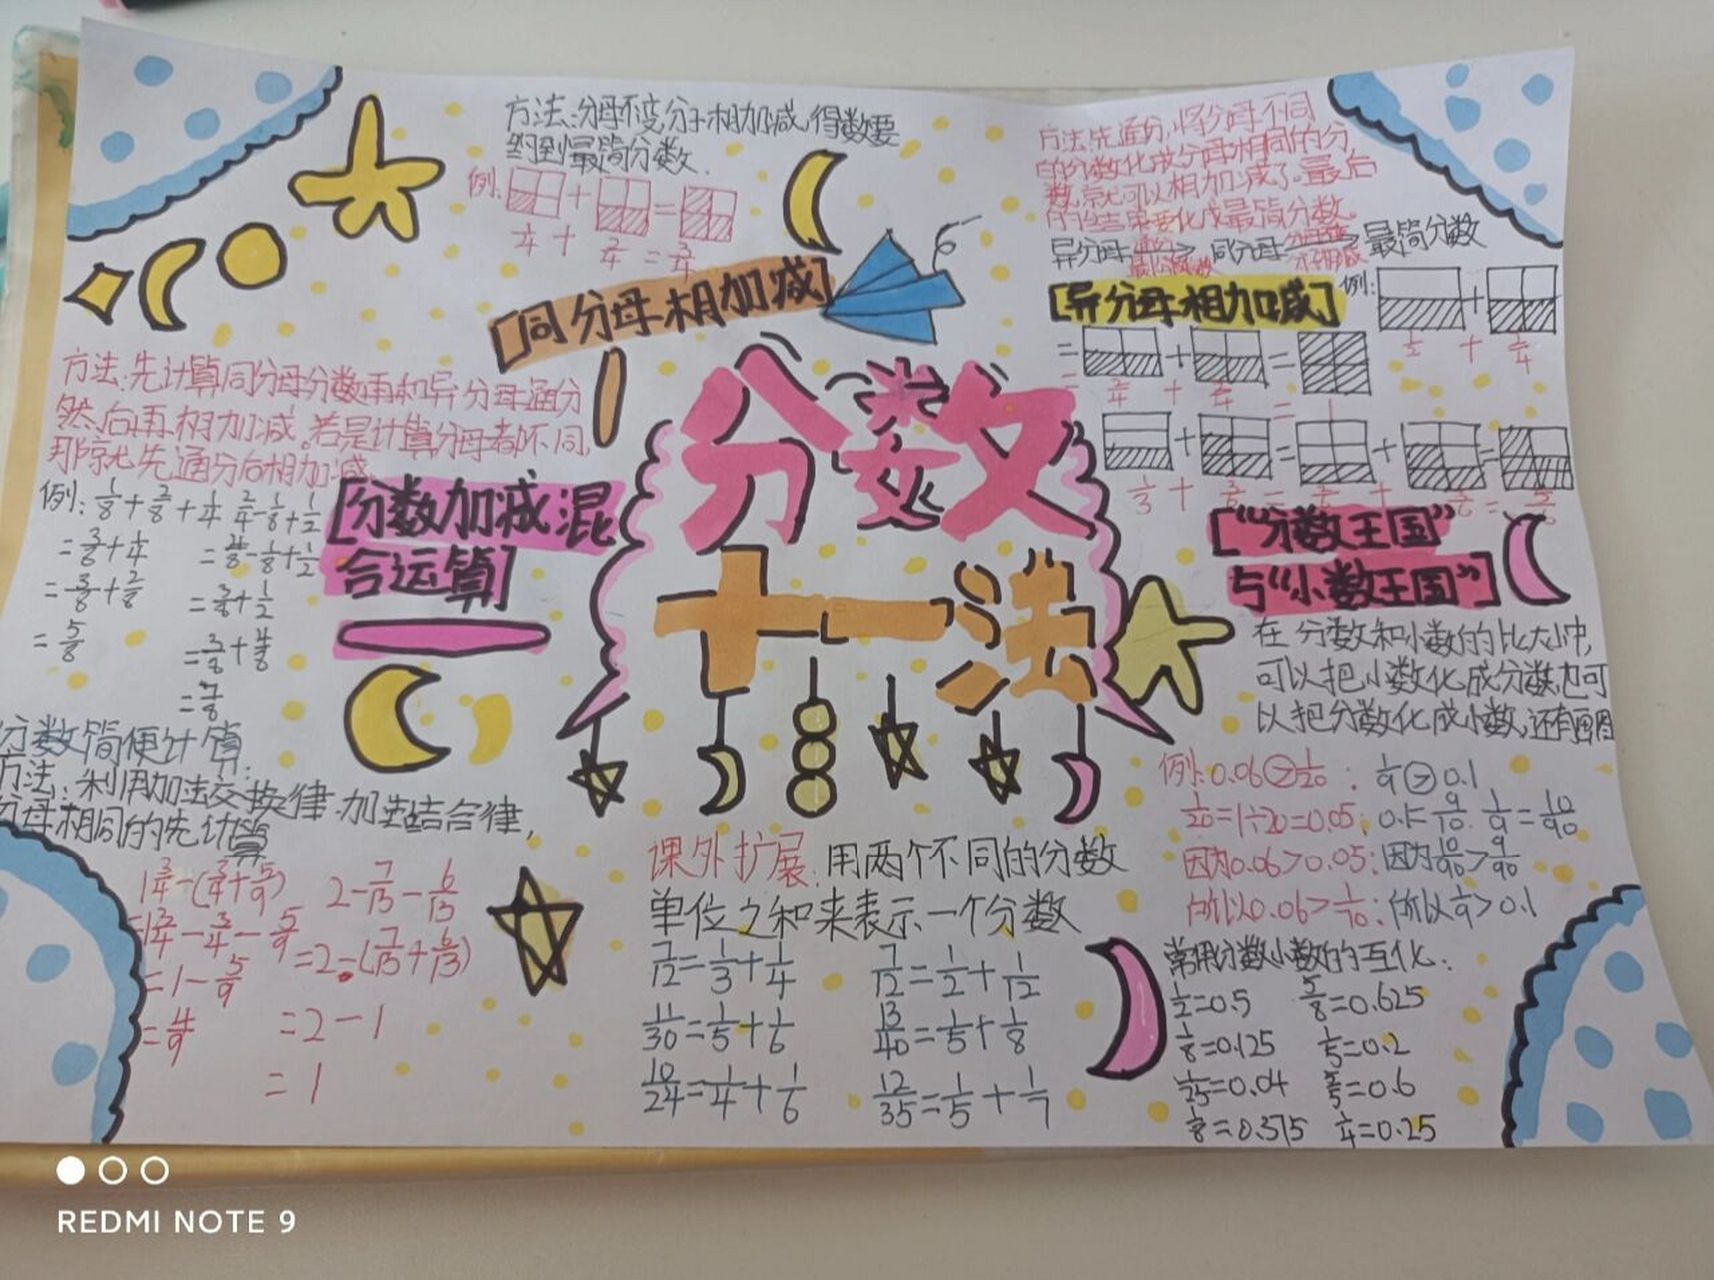 方法:分母不变,分子相加减,得数要
约到最简分数.
例:
1/4 + 2/4 = 3/4
[同分母相加减]
方法:先通分,将分母不同
的分数化成分母相同的分
数,就可以相加减了。最后
的结果要化成最简分数。
异分母 通分 同分母 最简分数
[异分母相加减]
例:
1/2 + 2/4
= 2/4 + 2/4 = 1
方法:先计算同分母分数再和异分母通分
然后再相加减。若是计算分母都不同,
那就先通分后相加减
例: 1/8+2/8+1/4 2/4-1/8+1/2
=3/8+1/4 =4/8-1/8+1/2
=3/8+2/8 =3/8+1/2
=5/8 =3/8+4/8
=7/8
[分数加减混
合运算]
分数
十一法
["分数王国"
与"小数王国"]
在分数和小数的比大小中,
可以把小数化成分数,也可
以把分数化成小数,还有画图
例:0.06>1/20 ; 1/9>0.1
1/20=1÷20=0.05; 0.1=9/10. 1/9=10/90
因为0.06>0.05;因为10/90>9/90
所以0.06>1/10;所以1/9>0.1
常用分数小数的互化:
1/2=0.5 5/8=0.625
1/8=0.125 1/5=0.2
1/25=0.04 3/5=0.6
3/8=0.375 1/4=0.25
分数简便计算:
方法:利用加法交换律.加法结合律,
分母相同的先计算
1 3/4-(3/4+5/9) 2-7/13-6/13
=1 3/4-3/4-5/9 =2-(7/13+6/13)
=1-5/9
=4/9 =2-1
=1
课外扩展:用两个不同的分数
单位之和来表示一个分数
7/12=1/3+1/4 7/12=1/2+1/12
11/30=1/5+1/6 13/40=1/5+1/8
10/24=1/4+1/6 12/35=1/5+1/7
REDMI NOTE 9